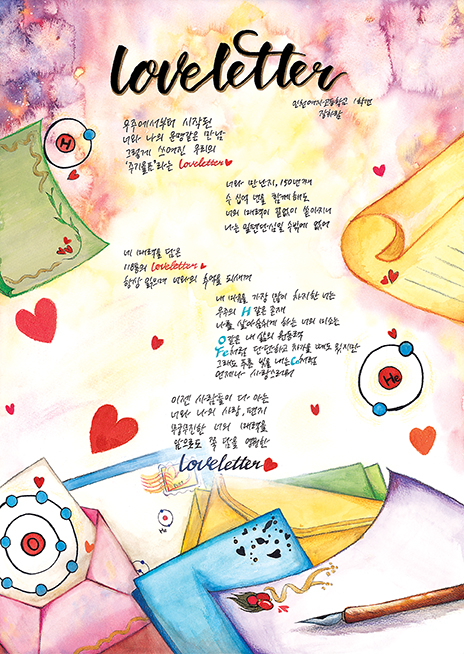 loveletter
인천여자고등학교 1학년
우주에서부터 시작된
너와 나의 운명같은 만남
그렇게 쓰여진 우리의
'주기율표'라는 loveletter
H
너와 만난지, 150년째
수 십억 년을 함께해도
너의 매력이 끝없이 쏟아지니
나는 일편단심일 수밖에 없어
네 매력을 담은
118통의 loveletter
항상 읽으며 너와의 추억을 되새겨
내 마음을 가장 많이 차지한 너는
우주의 H 같은 존재
나를 살아숨쉬게 하는 너의 미소는
O같은 내 삶의 원동력
Fe처럼 단단하고 차가울 때도 있지만
그래도 푸른 빛을 내는 Cs처럼
언제나 사랑스러워
He
이젠 사람들이 다 아는
너와 나의 사랑, 편지
무궁무진한 너의 매력을
앞으로도 쭉 담을 영원한
loveletter
He
O